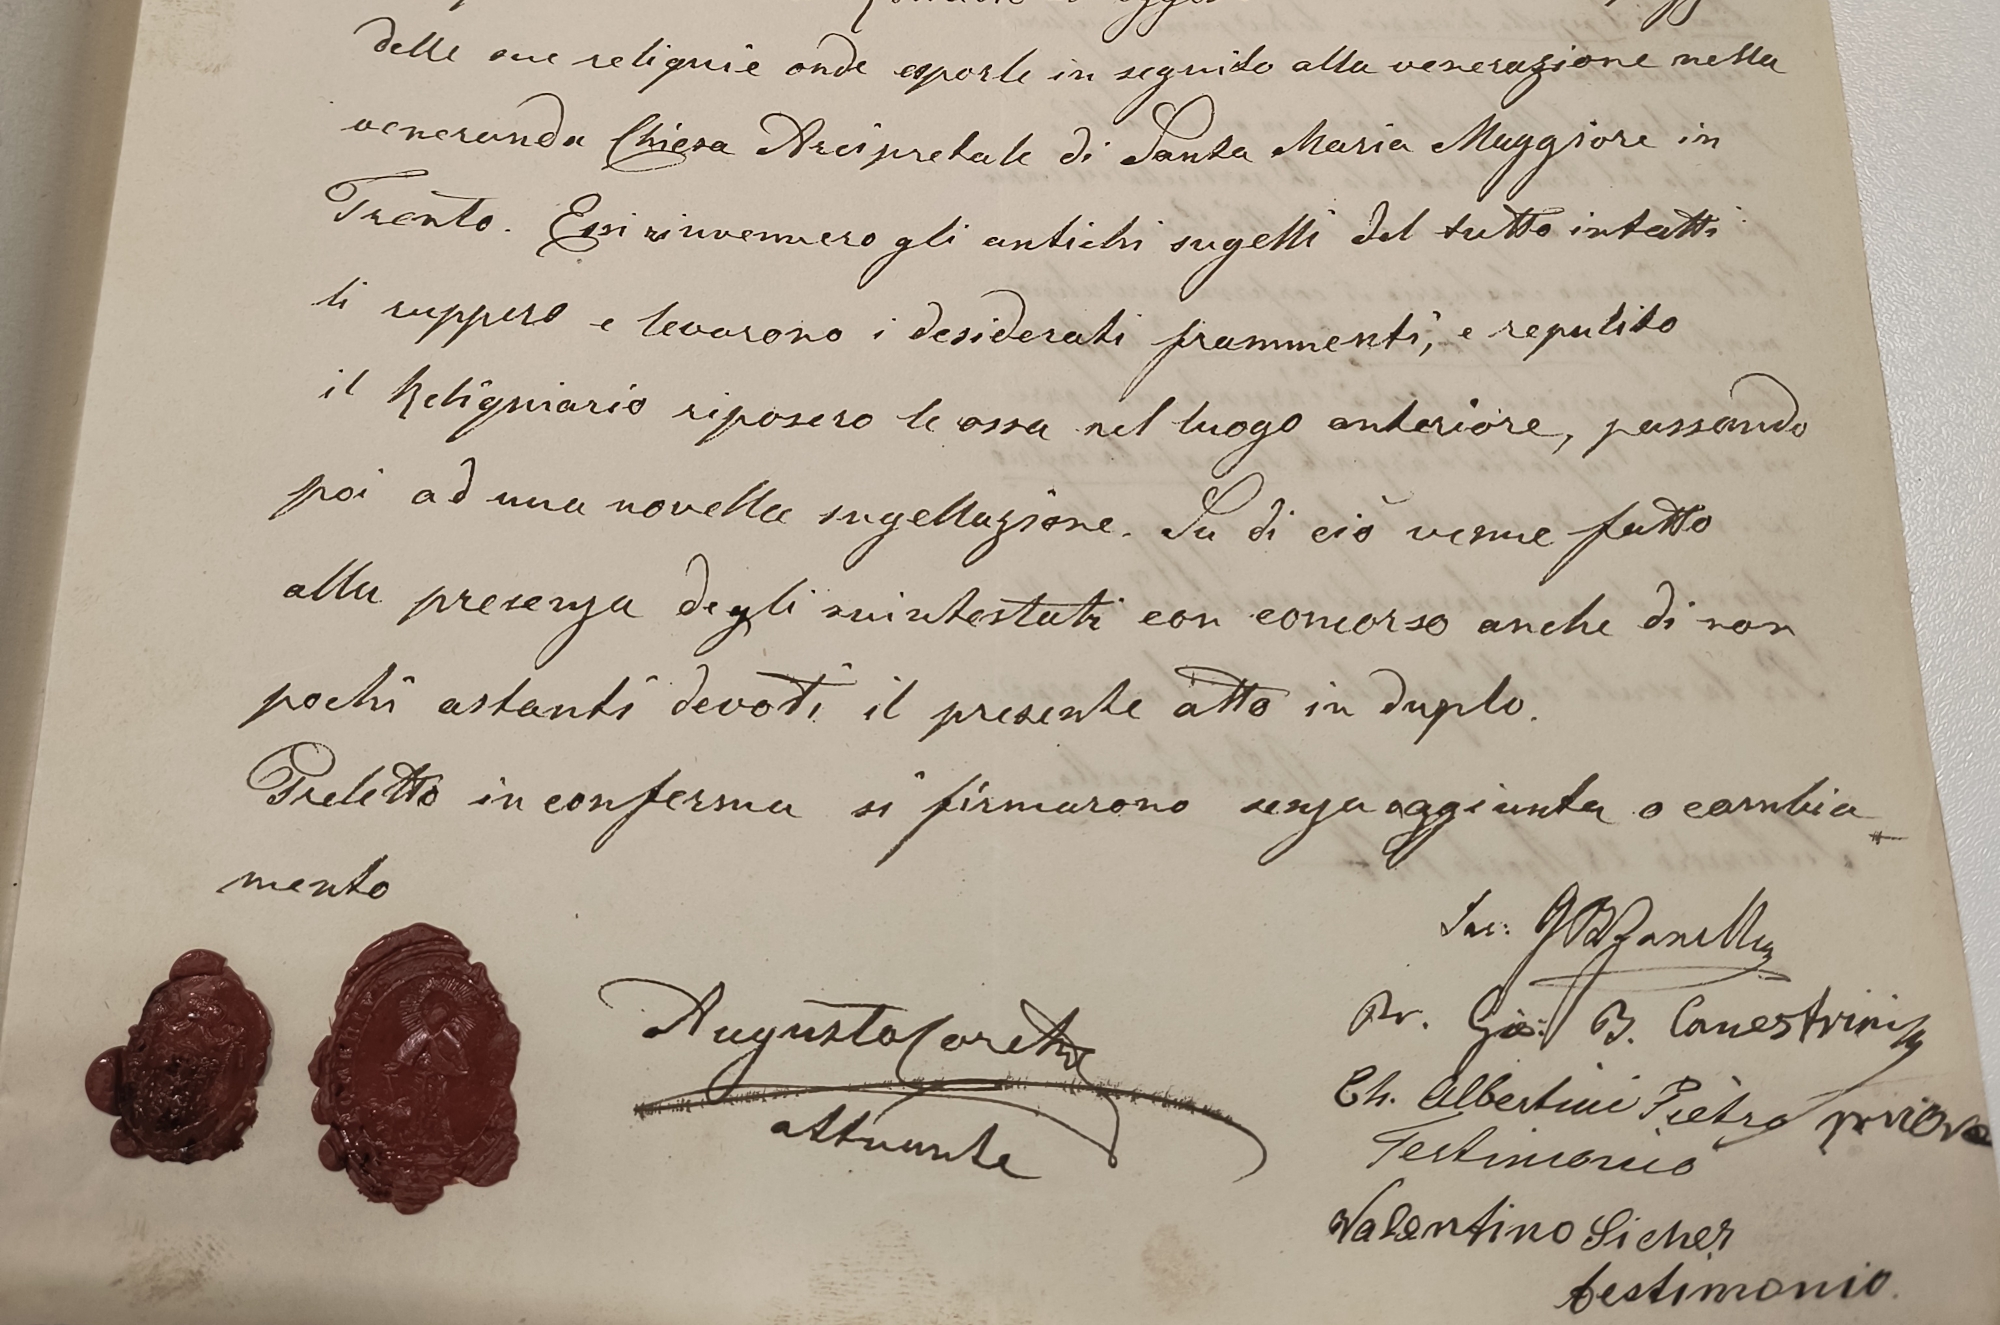 delle sue reliquie onde esporle in seguito alla venerazione nella
veneranda Chiesa Arcipretale di Santa Maria Maggiore in
Trento. Essi rinvennero gli antichi sugelli del tutto intatti
li ruppero e levarono i desiderati frammenti, e repulito
il Reliquiario riposero le ossa nel luogo anteriore, passando
poi ad una novella sugellazione. Su di ciò venne fatto
alla presenza degli suintestati con concorso anche di non
pochi astanti devoti il presente atto in duplo.
Preletto in conferma si firmarono senza aggiunta o cambia=
mento
Sac: GB Zanella
Pr. Gio: B. Canestrini
Augusto
attuante
Ch. Albertini Pietro
Testimonio
Valentino Sicher
testimonio.